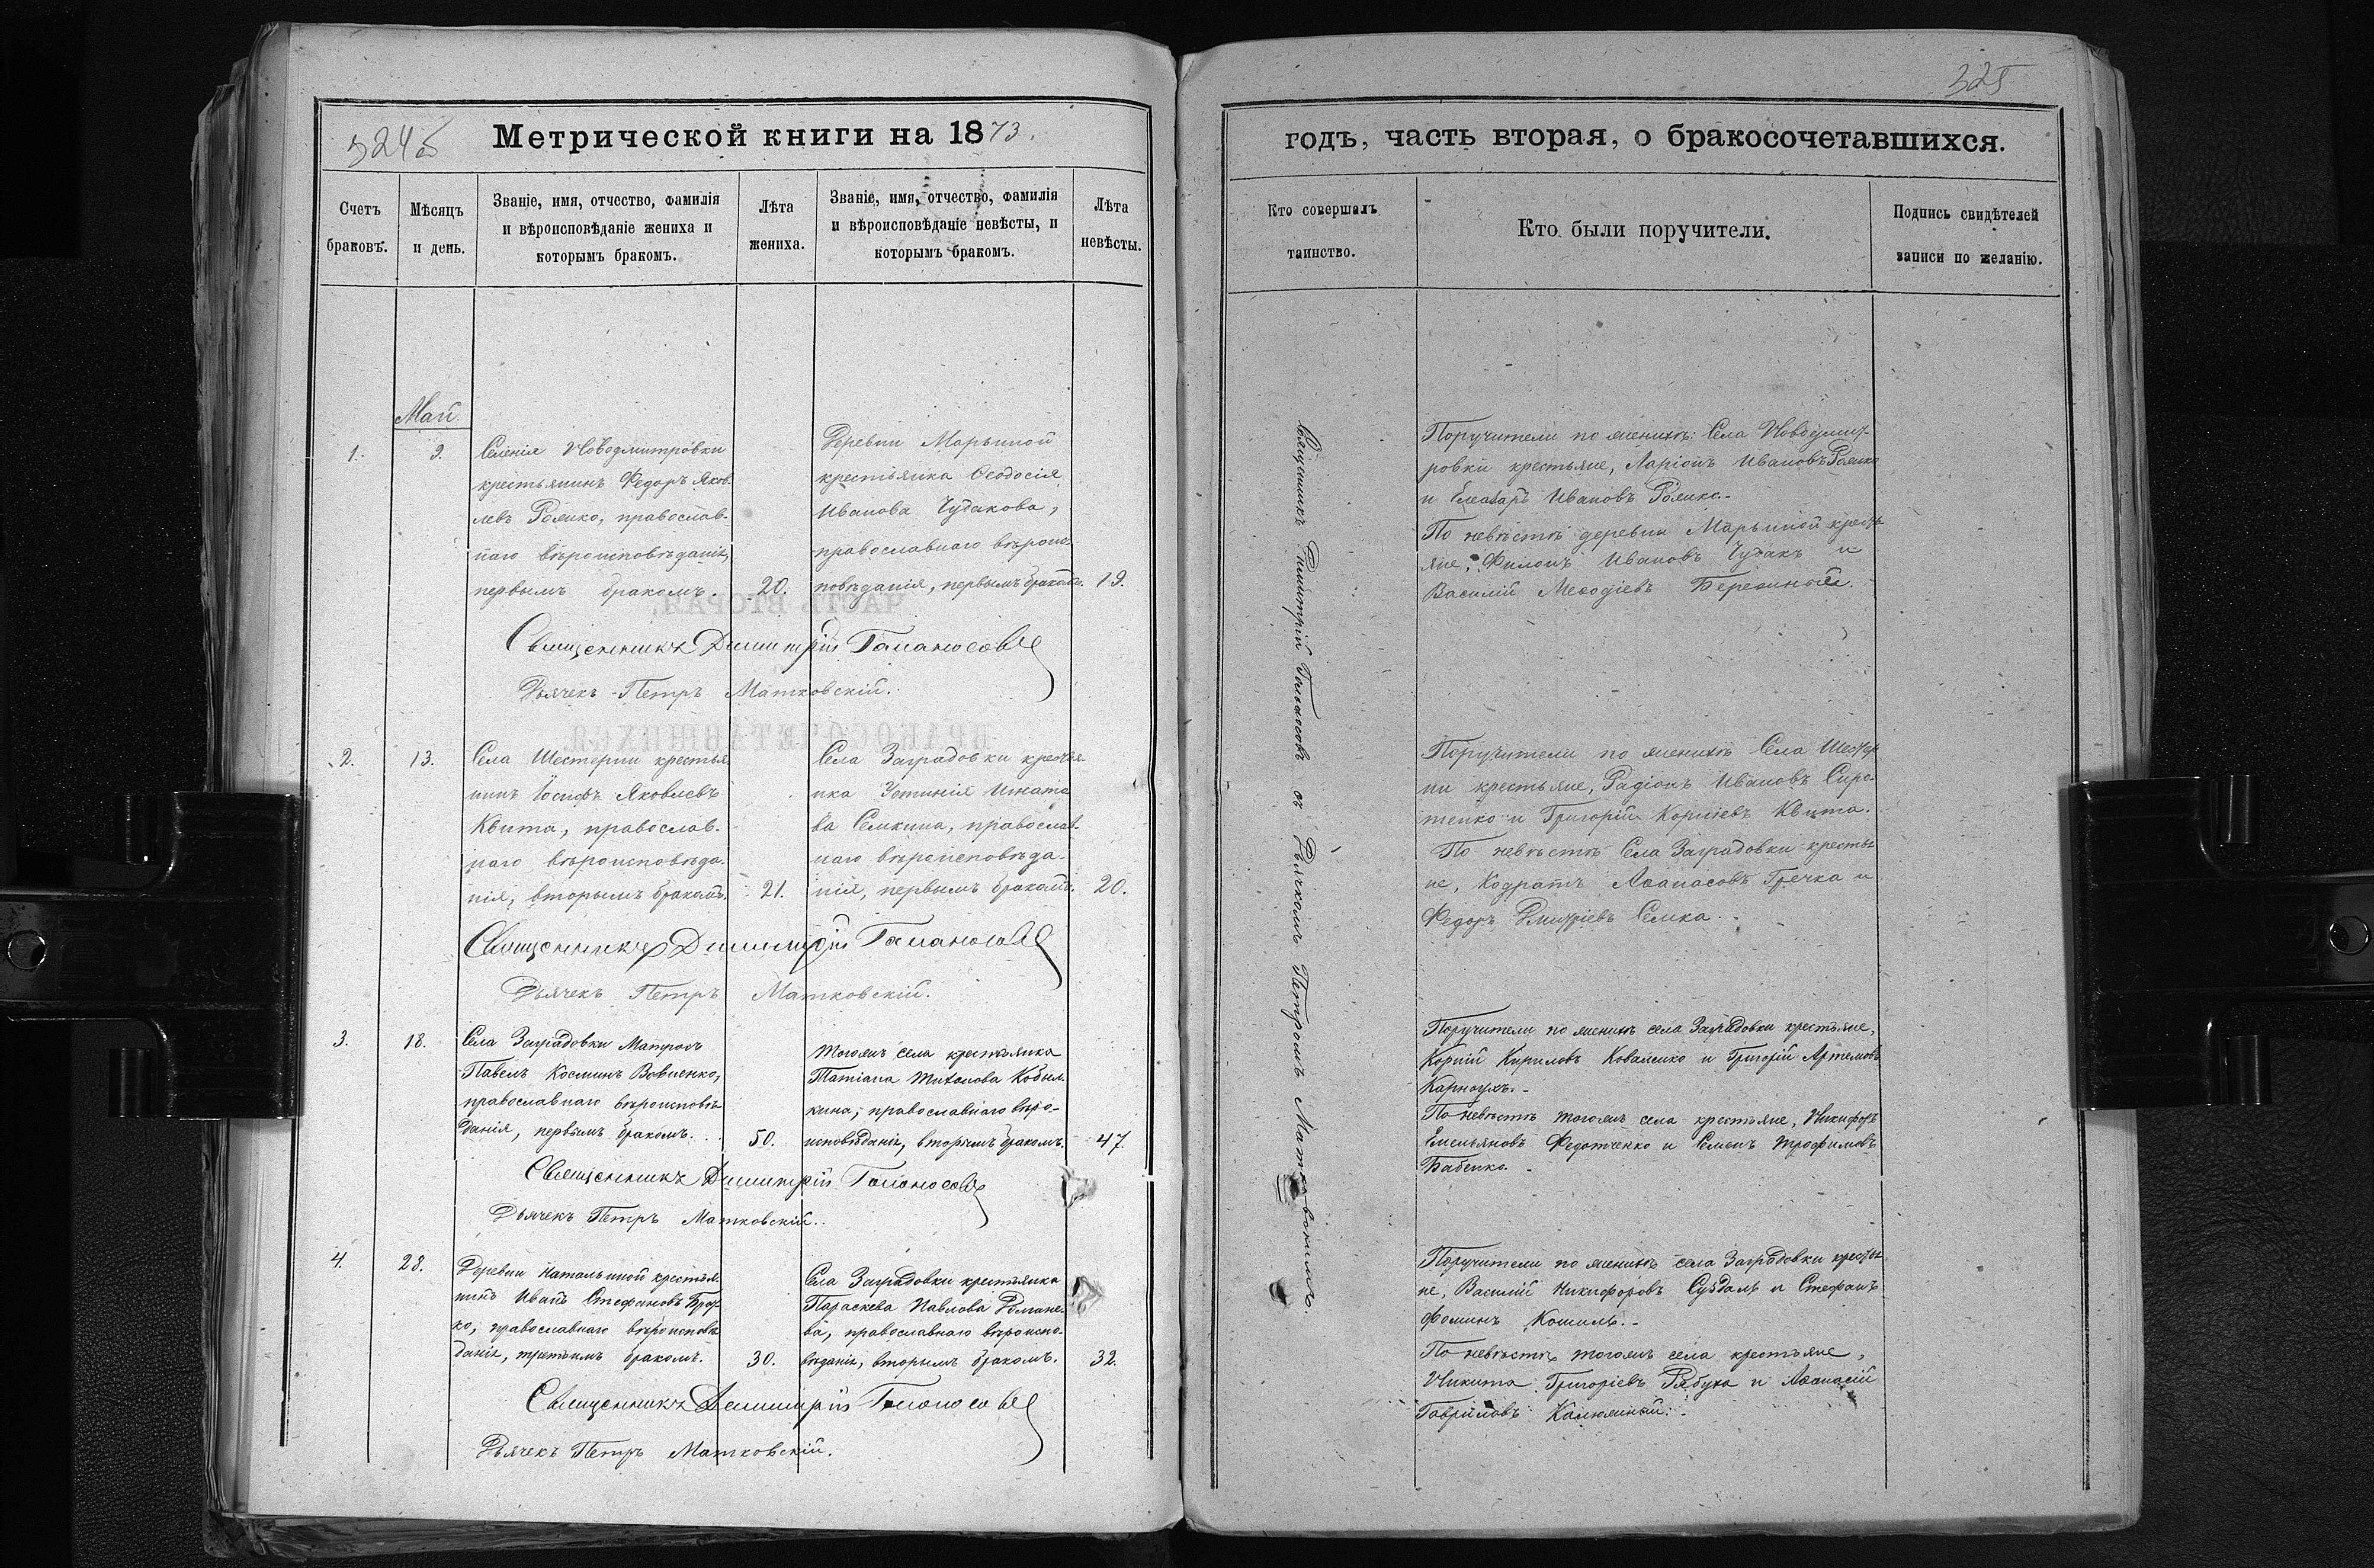 324б
Метрической книги на 1873.
Счетъ браковъ.
Мѣсяцъ и день.
Званіе, имя, отчество, фамилія и вѣроисповѣданіе жениха и которымъ бракомъ.
Лѣта жениха.
Званіе, имя, отчество, фамилія и вѣроисповѣданіе невѣсты, и которымъ бракомъ.
Лѣта невѣсты.
Май
1.
9.
Селенія Новодмитровки
крестьянинъ Федоръ Яков-
левъ Роенко, православ-
наго вѣроисповѣданія,
первымъ бракомъ.
20.
Деревни Марьиной
крестьянка Ѳеодосія
Иванова Чудакова,
православнаго вѣроис-
повѣданія, первымъ бракомъ.
19.
Священникъ Димитрій
Дьячекъ Петръ Матковскій.
2.
13.
Села Шестерни крестья-
нинъ Іосифъ Яковлевъ
Квита, православ-
наго вѣроисповѣда-
нія, вторымъ бракомъ.
21.
Села Заградовки крестья-
нка Устинія Игнато-
ва Семкина, православ-
наго вѣроисповѣда-
нія, первымъ бракомъ.
20.
Священникъ Димитрій
Дьячекъ Петръ Матковскій.
3.
18.
Села Заградовки Матрозъ
Павелъ Косминъ
православнаго вѣроисповѣ-
данія, первымъ бракомъ.
50.
Тогожъ села крестьянка
Татіана Тихонова Кобыл-
кина, православнаго вѣро-
исповѣданія, вторымъ бракомъ.
47.
Священникъ Димитрій
Дьячекъ Петръ Матковскій.
4.
28.
Деревни Натальиной крестья-
нинъ Иванъ Стефановъ
ко, православнаго вѣроисповѣ-
данія, третьимъ бракомъ.
30.
Села Заградовки крестьянка
Параскева Павлова Романе-
ва, православнаго вѣроиспо-
вѣданія, вторымъ бракомъ.
32.
Священникъ Димитрій
Дьячекъ Петръ Матковскій.
325
годъ, часть вторая, о бракосочетавшихся.
Кто совершалъ таинство.
Кто были поручители.
Подпись свидѣтелей записи по желанію.
Священникъ Димитрій съ Дьячкомъ Петромъ Матковскимъ.
Поручители по женихѣ: Села Новодмит-
ровки крестьяне, Ларіонъ Ивановъ Роенко
и Елеазаръ Ивановъ Роенко.-
По невѣстѣ деревни Марьиной кресть-
яне, Филонъ Ивановъ Чудакъ и
Василій Меѳодіевъ
Поручители по женихѣ Села Шестер-
ни крестьяне, Радіонъ Ивановъ Сиро-
тенко и Григорій Корніевъ Квита.
По невѣстѣ Села Заградовки крестья-
не, Кодратъ Аѳанасовъ Гречка и
Федоръ Дмитріевъ Семка.
Поручители по женихѣ села Заградовки крестьяне,
Корній Кириловъ Коваленко и Григорій Артемовъ
Карнаухъ.-
По невѣстѣ тогожъ села крестьяне, Никифоръ
Емельяновъ Федотченко и Семенъ Трофимовъ
Бабенко.-
Поручители по женихѣ села Заградовки крестья-
не, Василій Никифоровъ Суздаль и Стефанъ
Фоминъ Кошиль.-
По невѣстѣ тогожъ села крестьяне,
Никита Григоріевъ Рябуха и Аѳанасій
Гавриловъ Калюжный.-